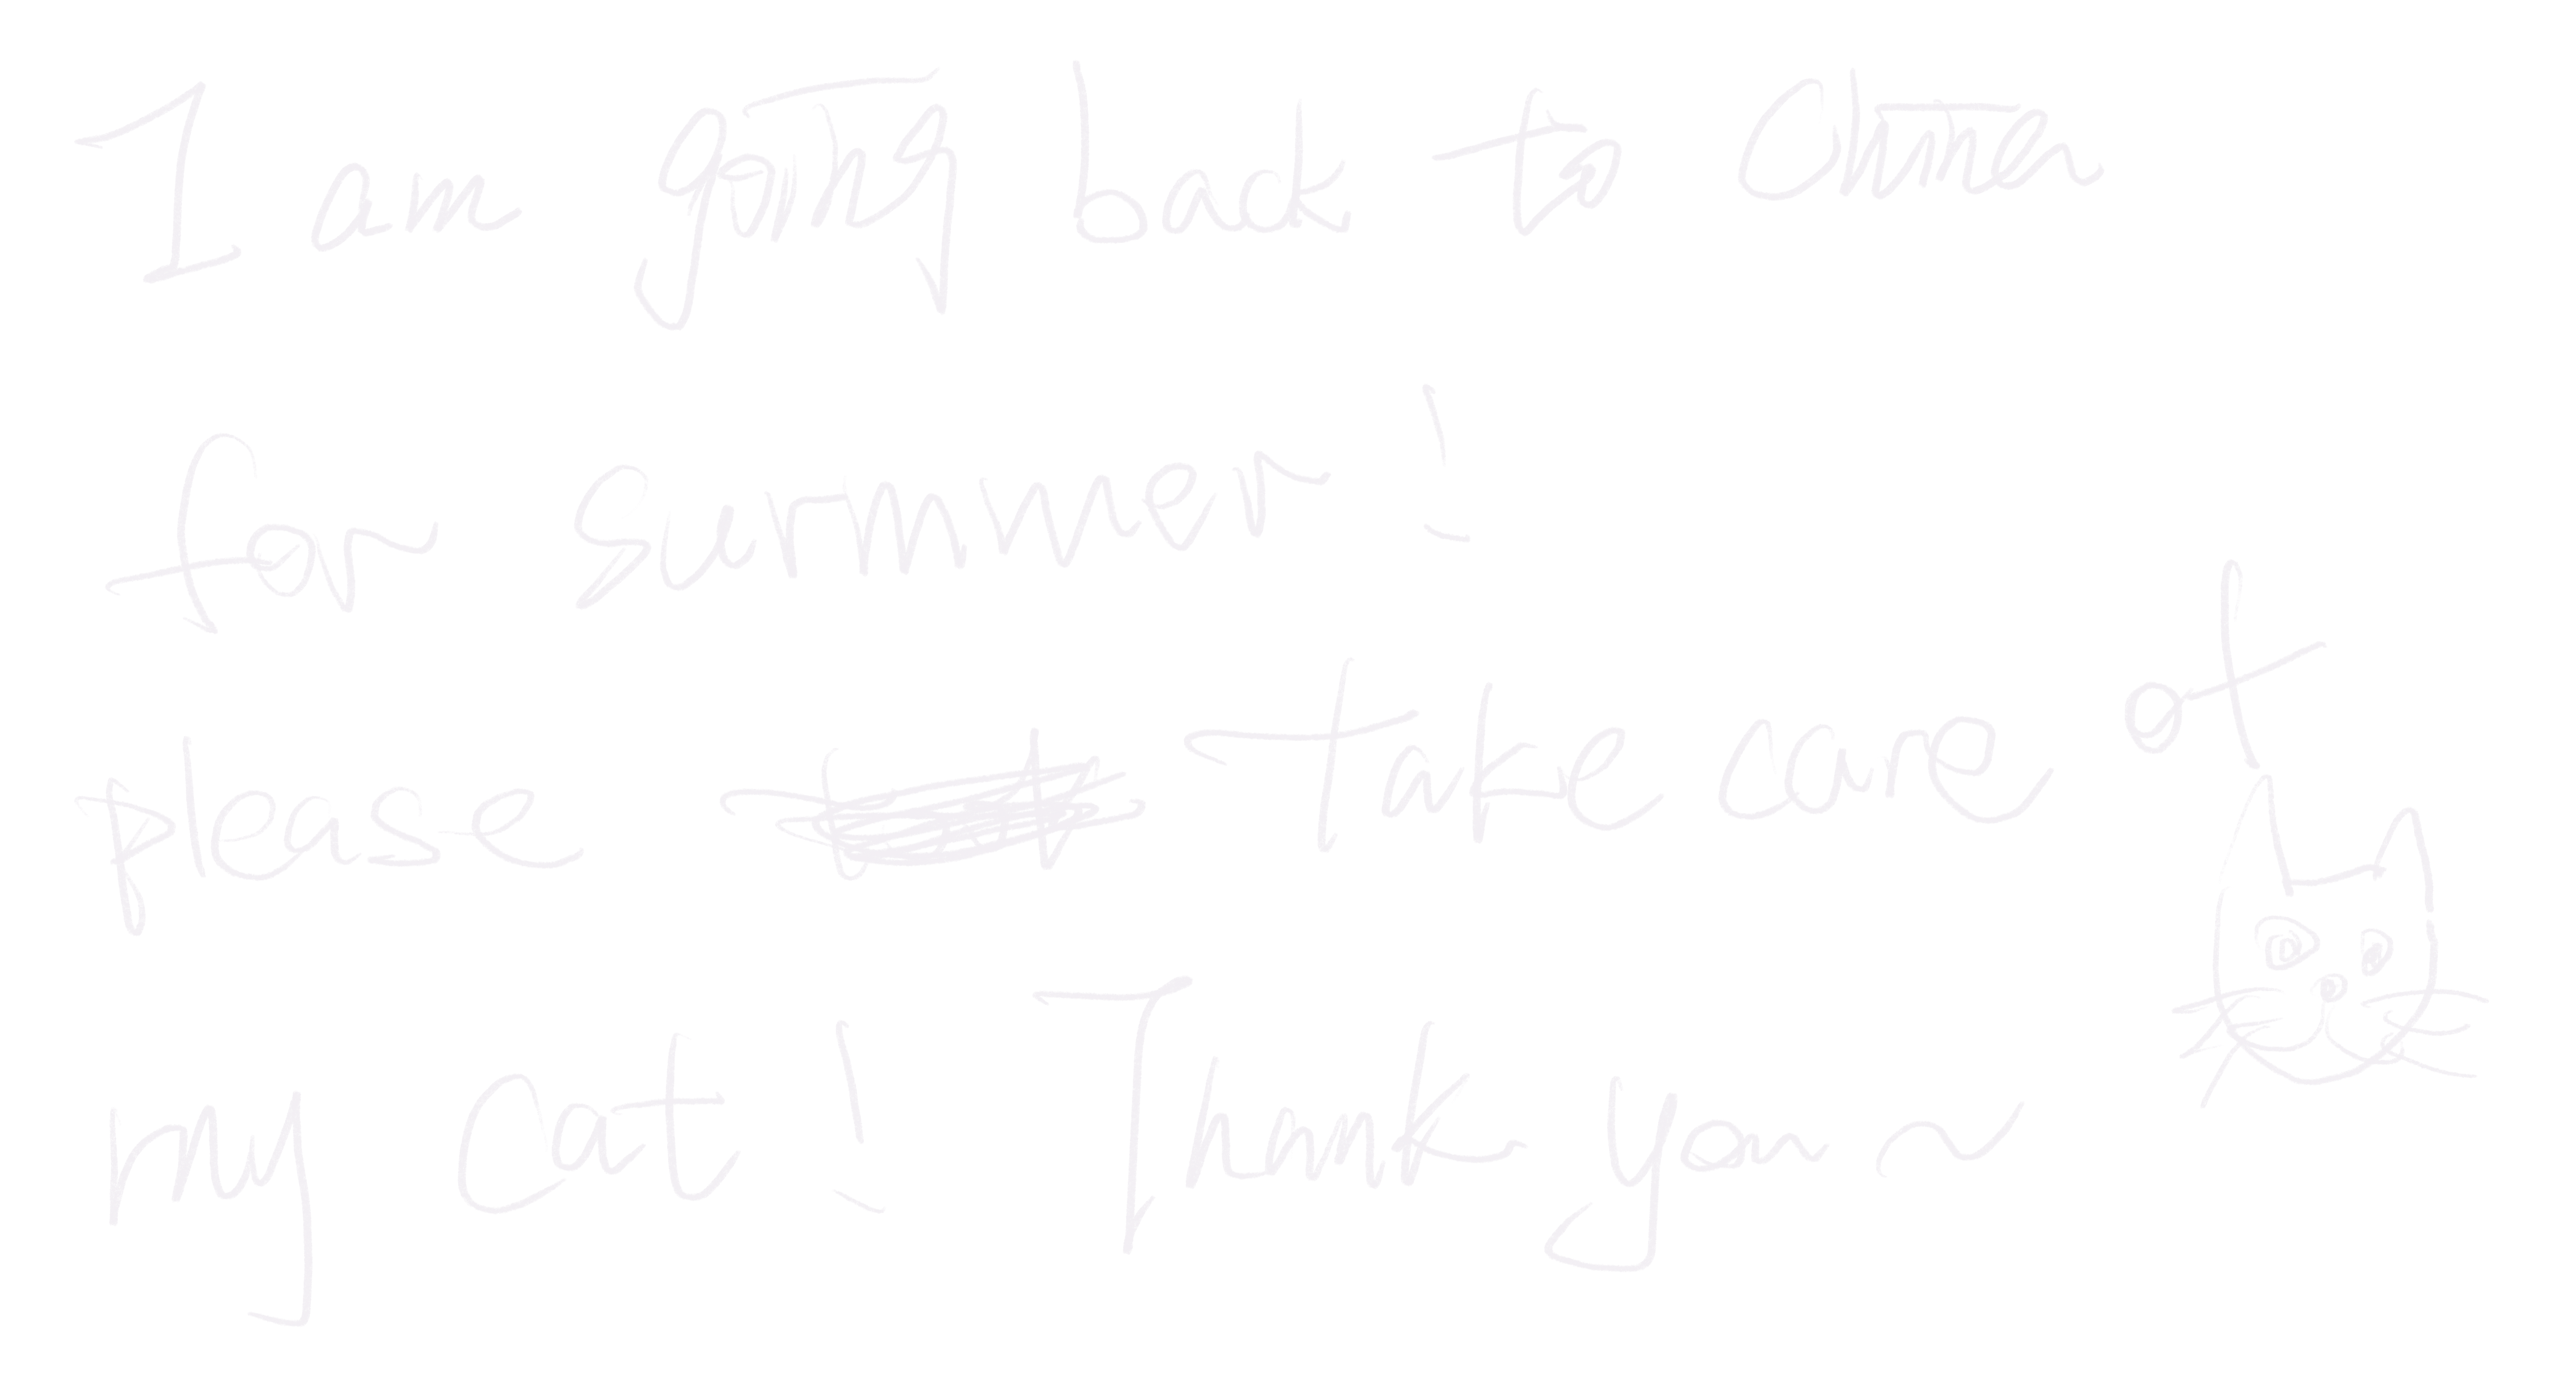 I am going back to China
for summer!
please take care of
my cat! Thank you~